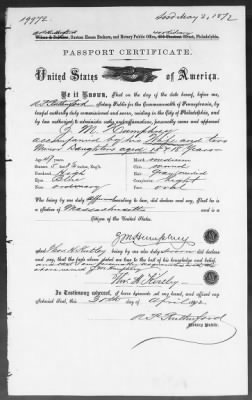 19972
Iss'd May 2, 1872
Custom House Brokers, and Notary Public, Philadelphia.
PASSPORT CERTIFICATE.
United States of America.
Be it Known, That on the day of the date hereof, before me,
R F Rutherford Notary Public for the Commonwealth of Pennsylvania, by
lawful authority duly commissioned and sworn, residing in the City of Philadelphia, and
by law authorized to administer oaths, personally came and appeared
J. M. Humphrey
accompanied by his Wife and two
Minor Daughters aged 15 & 18 years
Age
Mouth medium
Stature 5 feet inches, Eng.
Chin round
Forehead High
Hair Gray mixed
Eyes Blue
Complexion Light
Nose ordinary
Face oval
Who being by me duly affirmed according to law, did declare and say, That he is a
Native of Massachusetts and is a
Citizen of the United States.
J M Humphrey
And Thos. H. Kirtley being by me duly sworn did declare
and say, that the facts above stated are true to the best of his knowledge and belief
Thos. H. Kirtley
In Testimony whereof, I have hereunto set my hand, and affixed my
Notarial Seal, this 30th day of April 1872.
R F Rutherford
Notary Public.